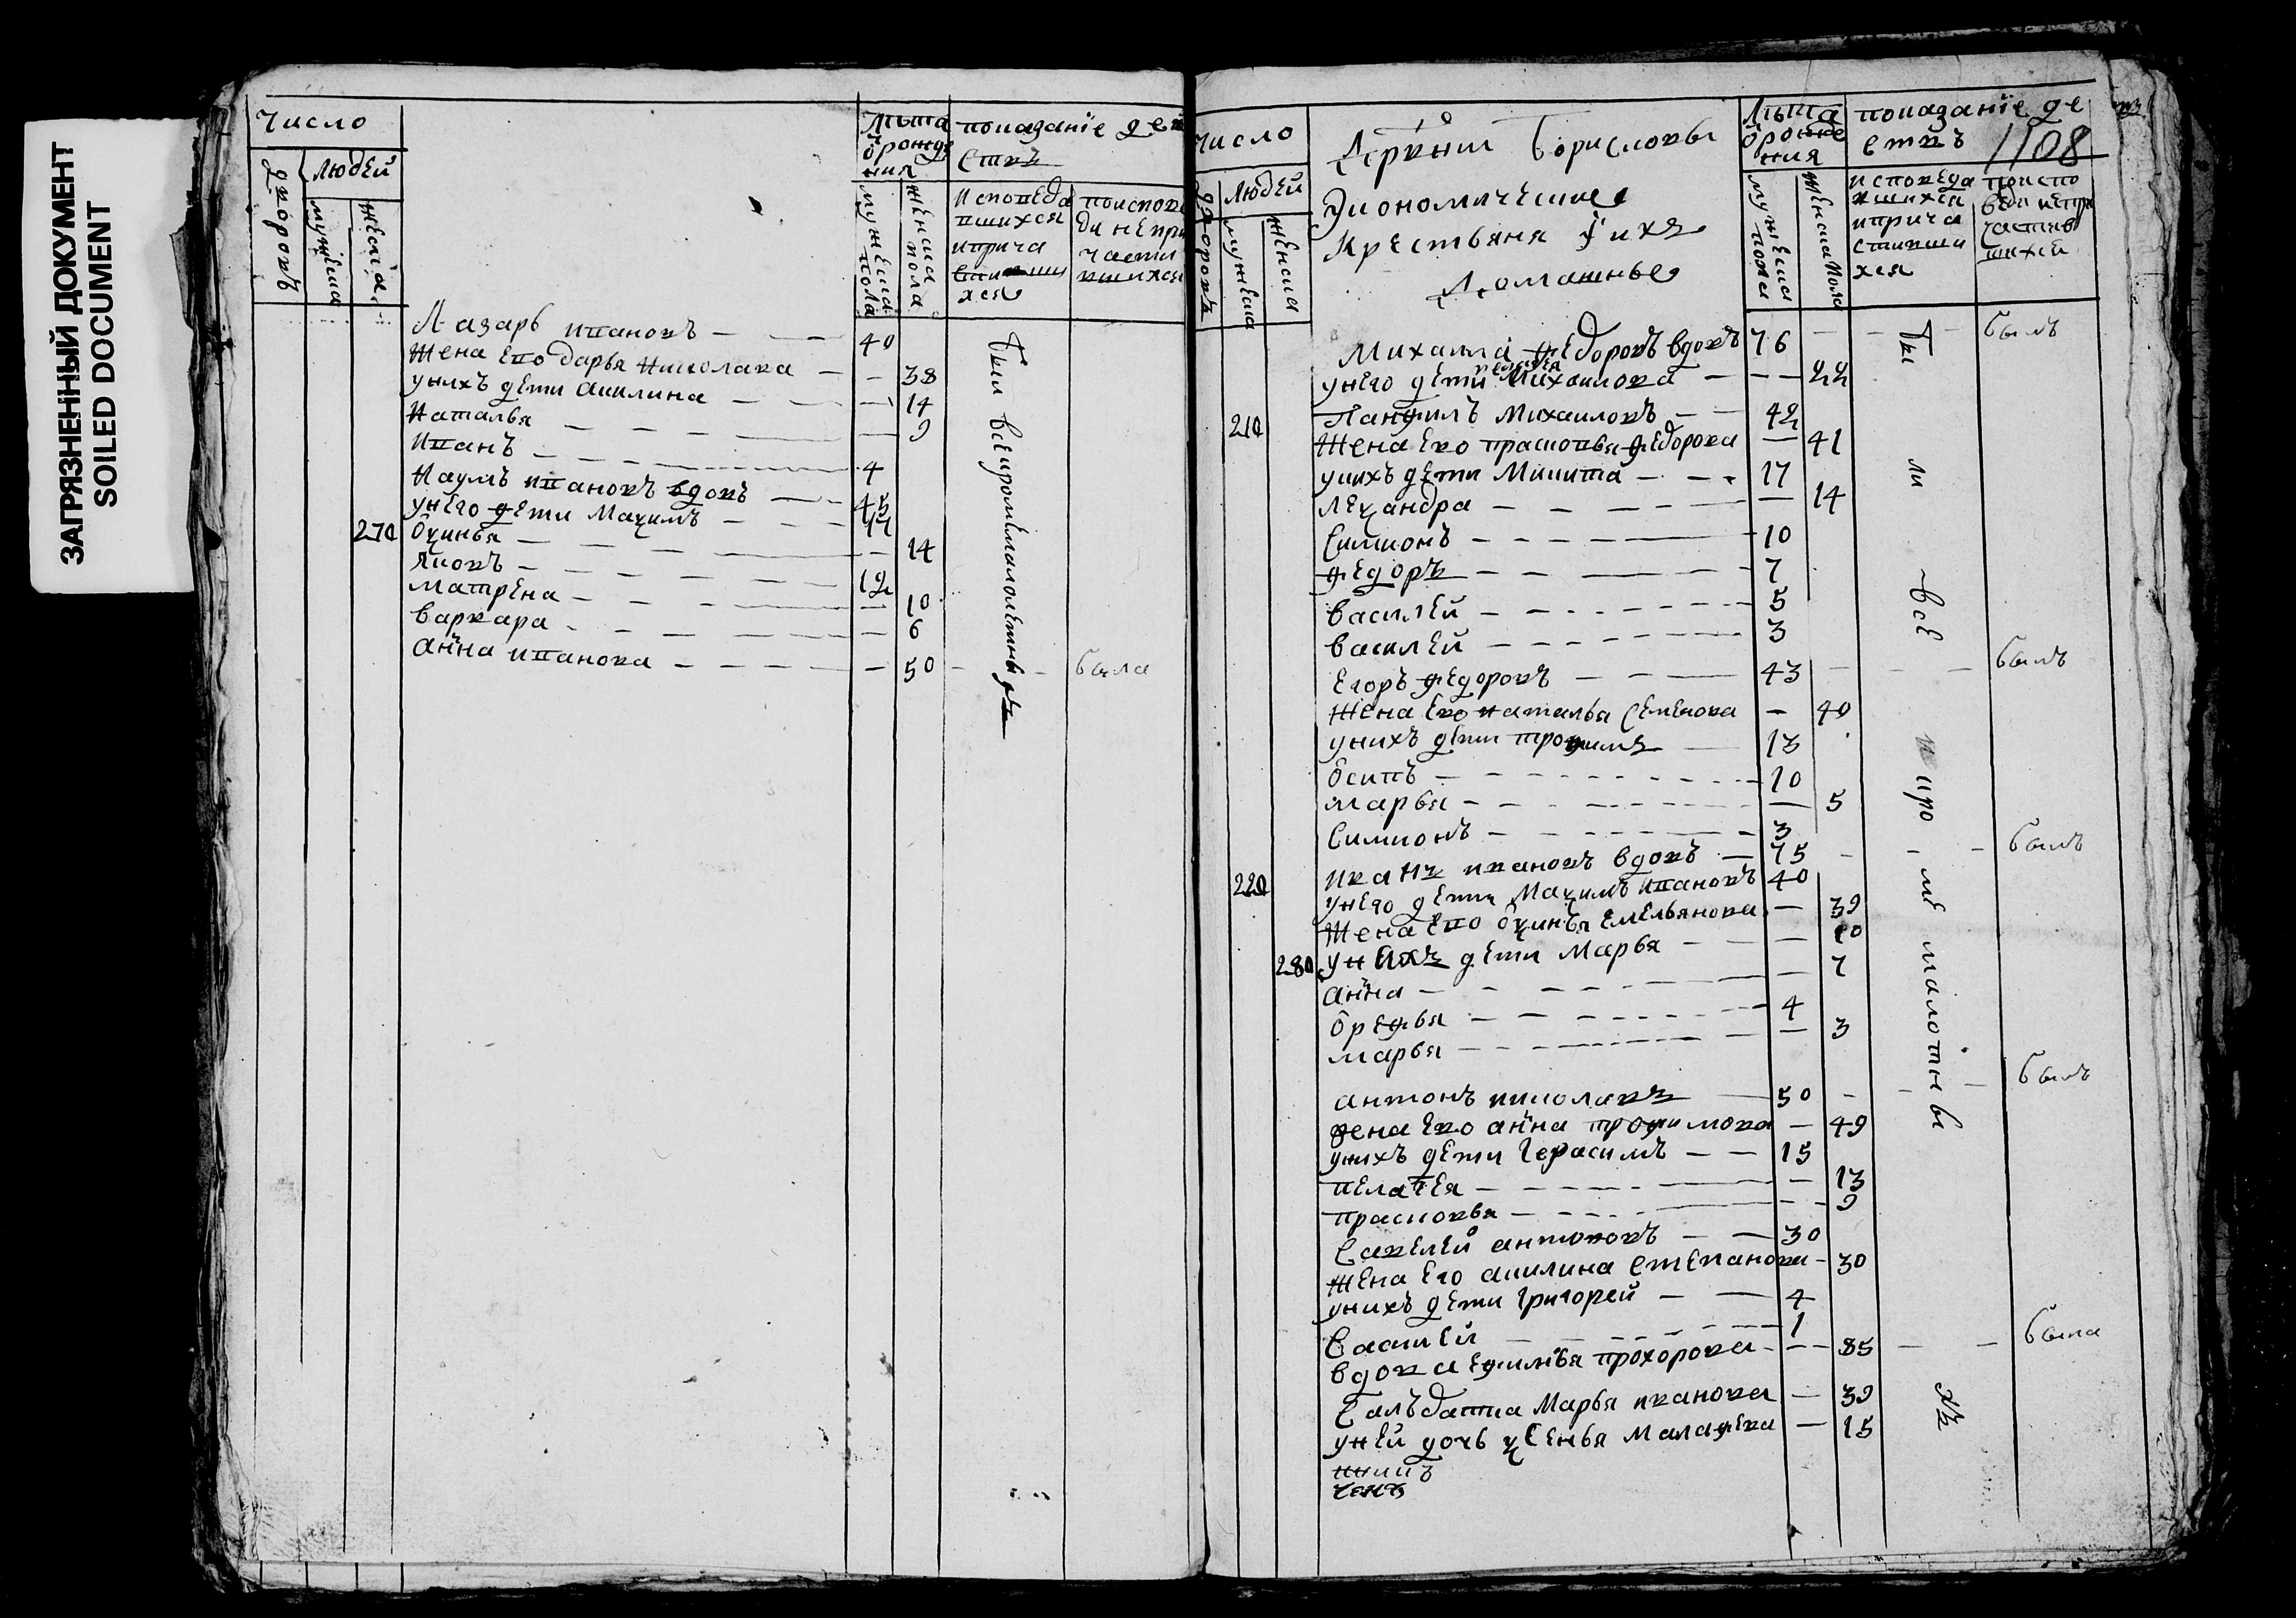 ЗАГРЯЗНЕННЫЙ ДОКУМЕНТ
SOILED DOCUMENT
Число
дворовъ
людей
мужеска
женска
Лѣта
ѿ рожде
ния
мужеска
пола
женска
пола
показанїе дей
ствъ
исповеда
вшихся
и прича
стивши
хся
по испове
ди не при
части
вшихся
Лазарь ивановъ — — 40
Жена ево дарья николава — — 38
у нихъ дети акилина — — — 14
Наталья — — — — 9
Иванъ — — — — 4
Наумъ ивановъ вдовъ — — 45
у него дети Маѯимъ — — —
270 Ѻѯинья — — — — 14
Яковъ — — — — 12
матрена — — — — 10
варвара — — — — 6
анна иванова — — — — 50 — — была
были все кроме малолетныхъ
1108
число
дворовъ
людей
мужеска
женска
Деревни Борисловы
Экономические
крестьяня и ихъ
домашные
Лѣта
ѿ рожде
ния
мужеска
пола
женска пола
показанїе де
ствъ
исповеда
вшихся
и прича
стивши
хся
по испо
веди не при
частив
шихся
Михаила федоровъ вдовъ 76 — — былъ
у него дети пелагея Михаилова — — — 22
210 Панфилъ Михаиловъ — — 42
Жена ево прасковья федорова — 41
у нихъ дети Микита — — 17
леѯандра — — — — 14
Симионъ — — — — 10
федоръ — — — — 7
василей — — — — 5
василей — — — — 3
Егоръ федоровъ — — — 43 — — былъ
Жена ево наталья Семенова — 40
у нихъ дети трофимъ — 13
Ѻсипъ — — — — 10
Марья — — — — 5
Симионъ — — — — 3
иванъ ивановъ вдовъ — 75 — — былъ
220 у него дети Маѯимъ ивановъ 40
Жена ево Ѻѯинья Емельянова — 39
280 у нихъ дети Марья — — — 10
анна — — — — 7
Ѻрефья — — — — 4
марья — — — — 3
антонъ николавъ — 50 — — былъ
жена ево анна трофимова — 49
у нихъ дети Герасимъ — — 15
пелагея — — — — 13
прасковья — — — — 9
Савелей антоновъ — — 30
Жена его акилина степанова — 30
у нихъ дети Григорей — — 4
Василей — — — — 1
вдова Ефимья прохорова — — 85 — — была
Салъдатка Марья иванова — 39
у ней дочь ѯсенья малафева — 15
были все кроме малотных